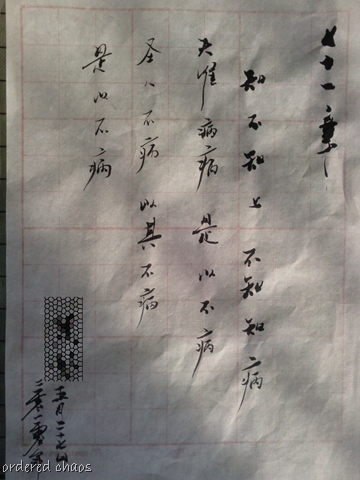 七十一章
知不知上不知知病
夫唯病病是以不病
圣人不病以其不病
是以不病
五月二十七日
二零一零年
ordered chaos